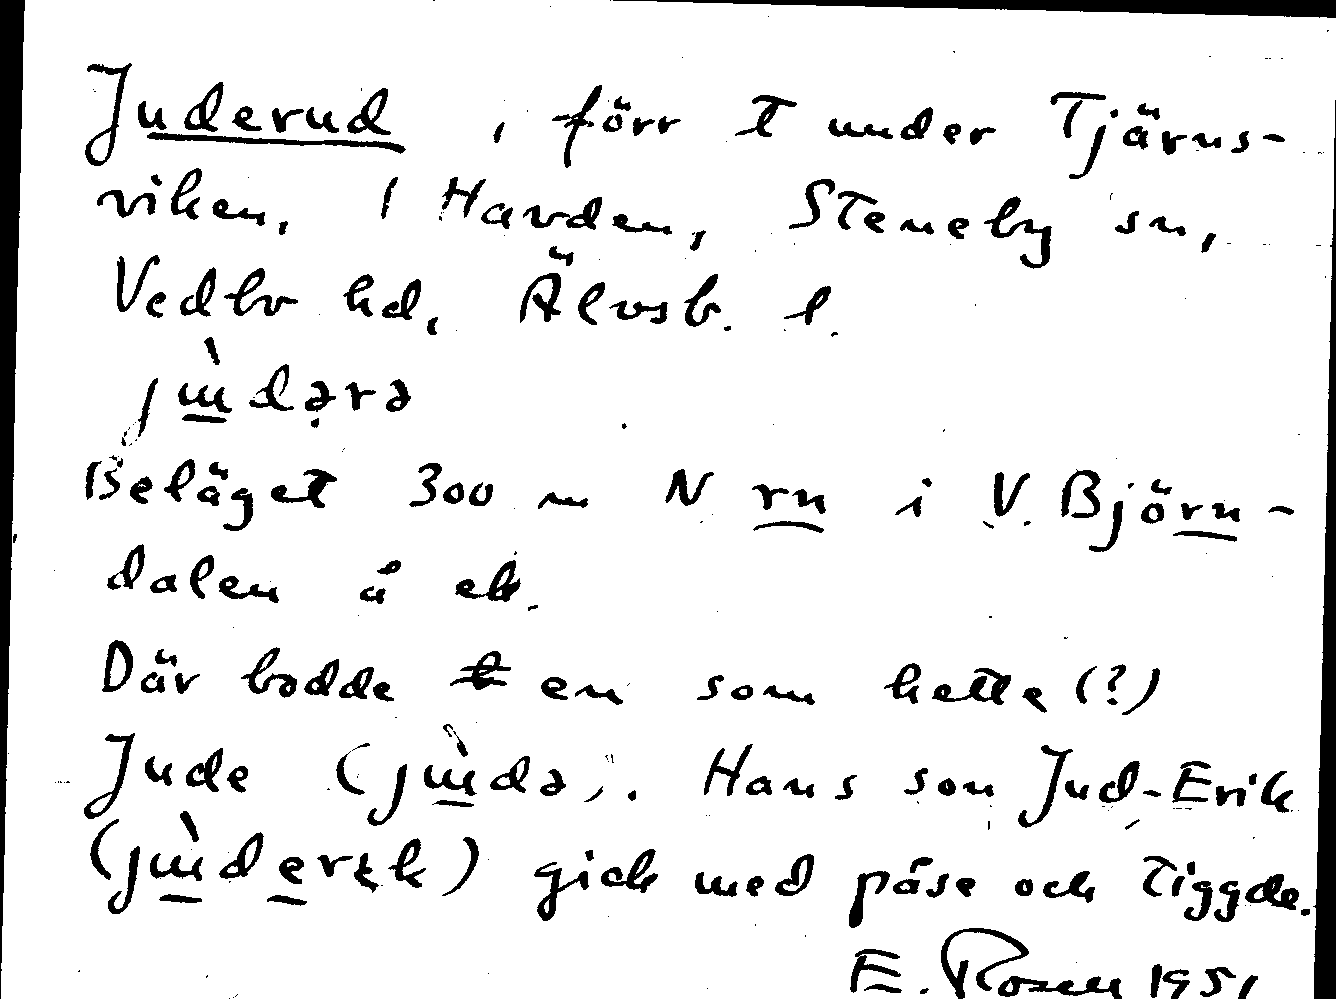 Juderud, förr t under Tjärns-
viken, 1 Havden, Steneby sn,
Vedbo hd, Älvsb. l.
jɯ̀dərə
Beläget 300 m N rn i V. Björn-
dalen å ek.
Där bodde en som hette (?)
Jude (jɯ̀də). Hans son Jud-Erik
(jɯ̀derɪk) gick med påse och tiggde.
E. Rosen 1951